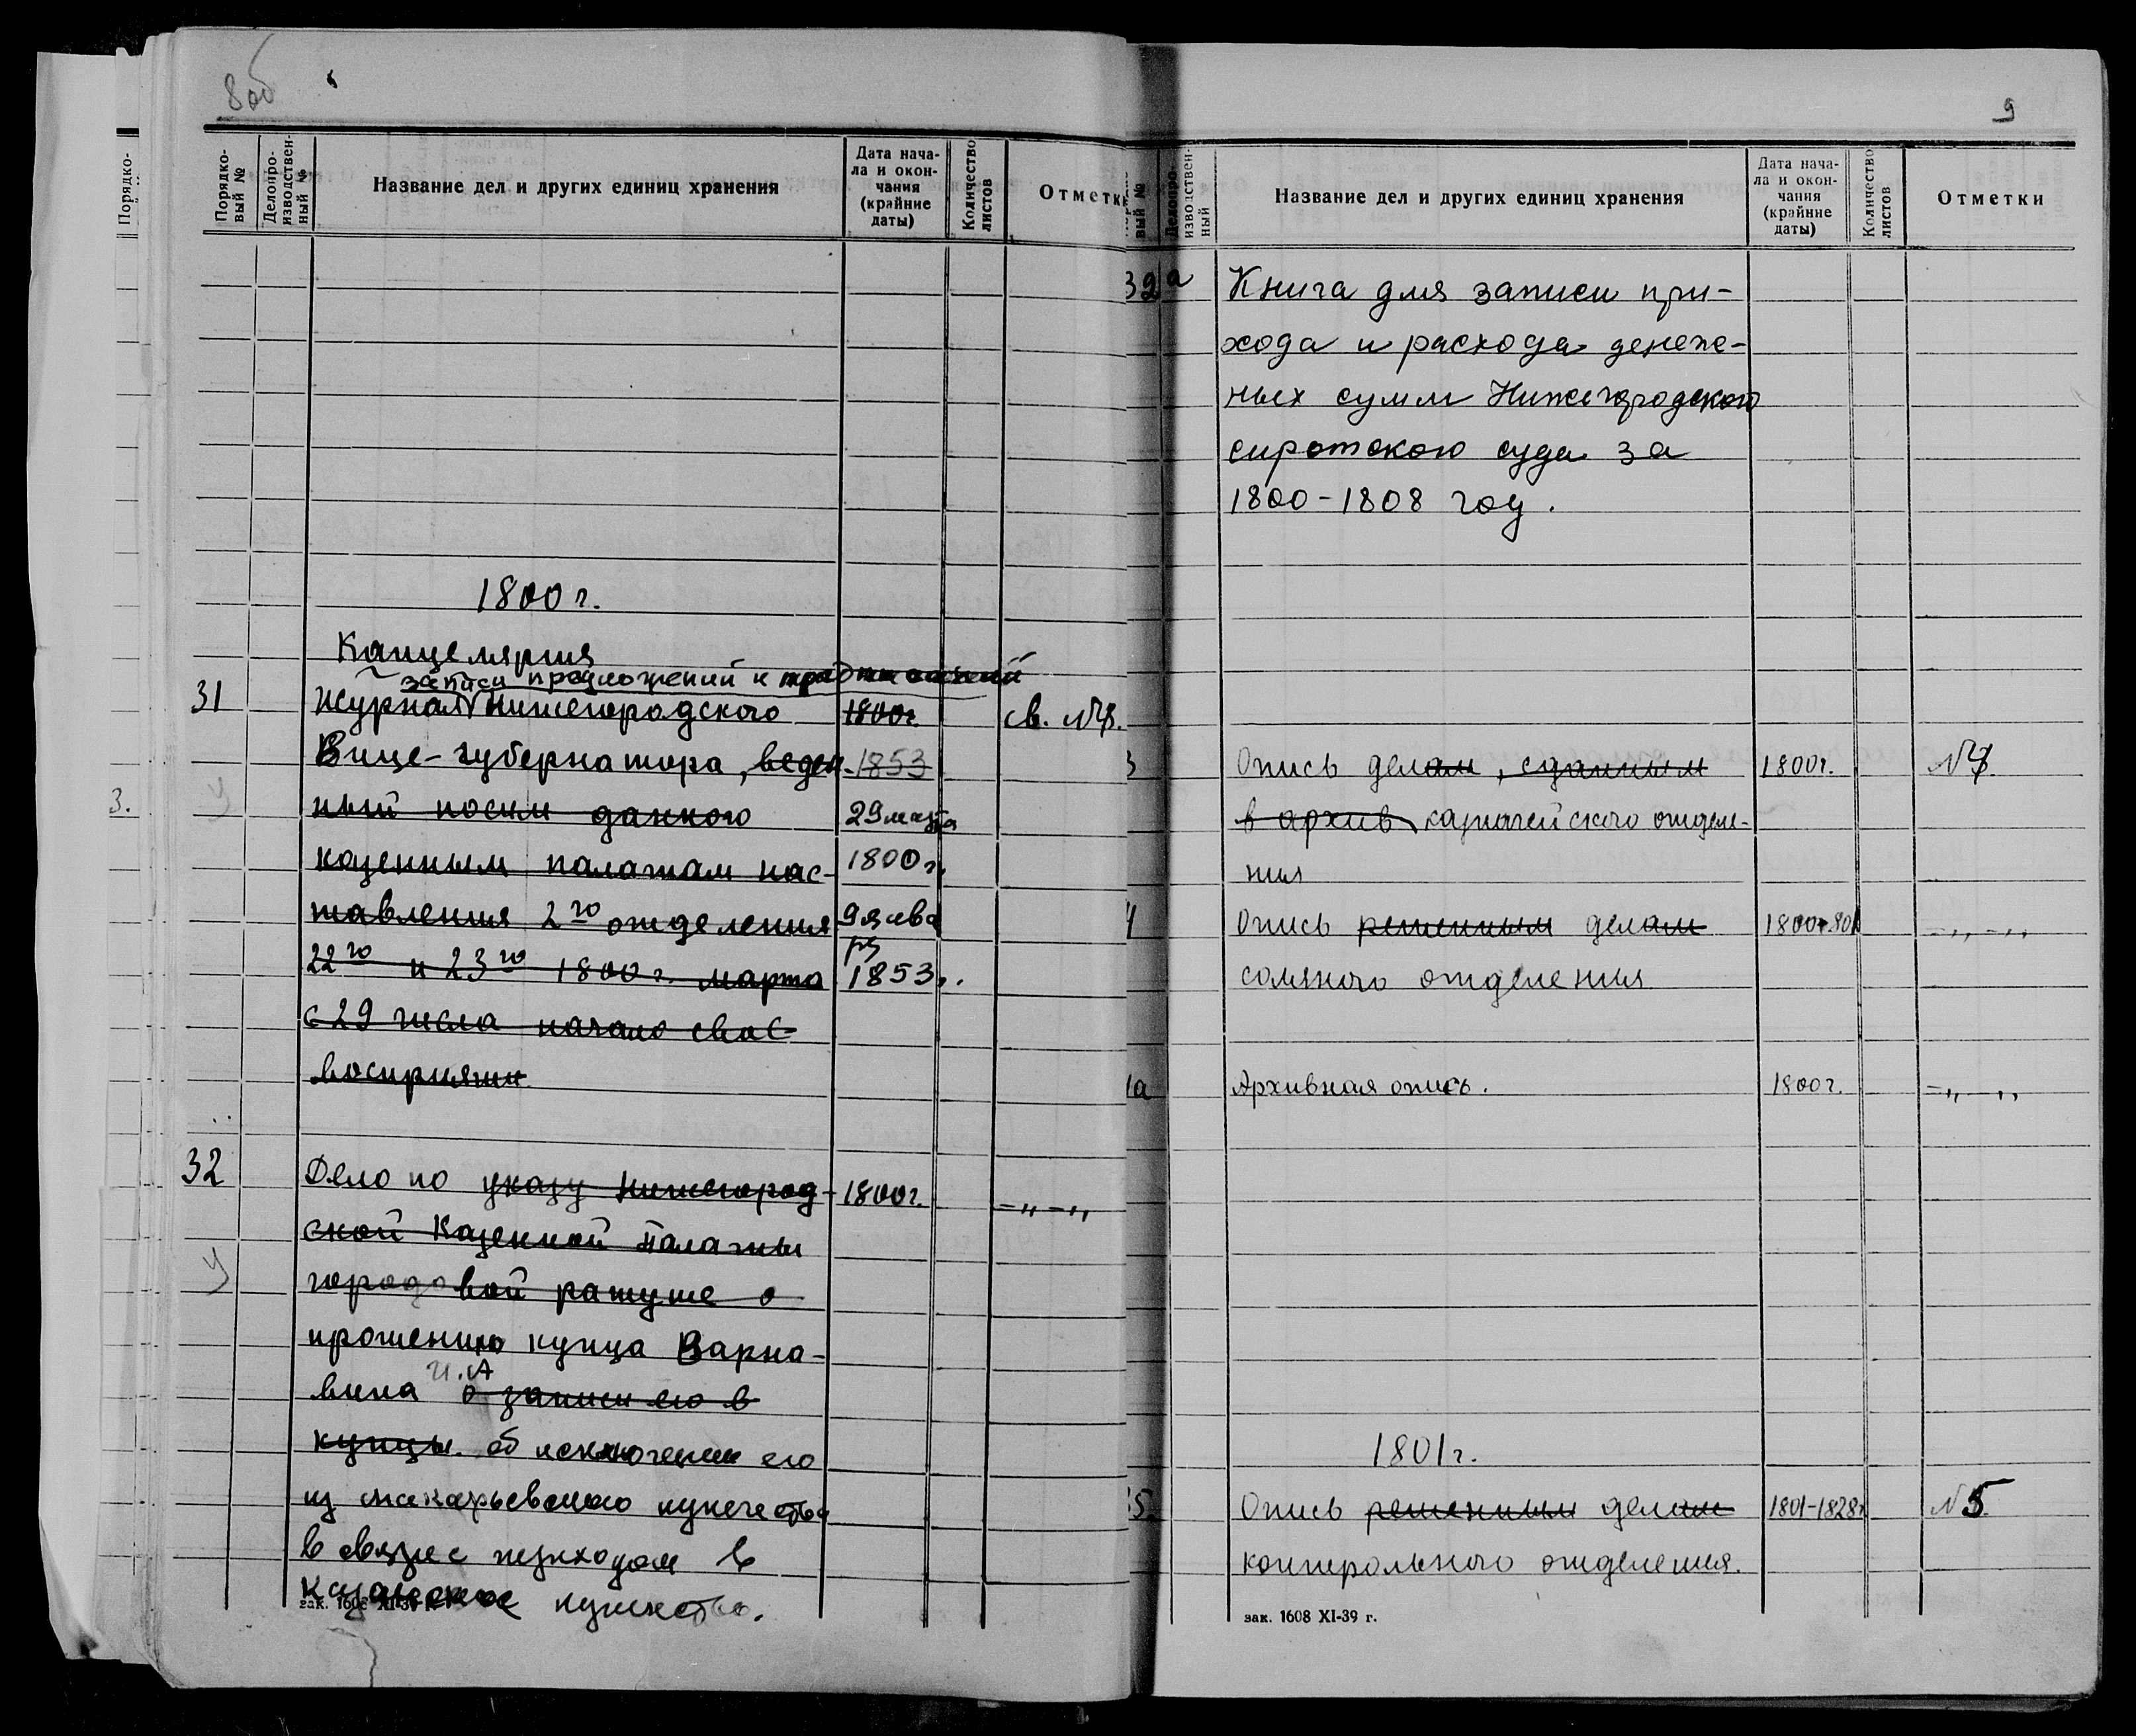 8об
Порядко-
вый №
Делопро-
изводствен-
ный №
Название дел и других единиц хранения
Дата нача-
ла и окон-
чания
(крайние
даты)
Количество
листов
Отметк
1800 г.
Канцелярия
записи предложений и
31 Журнал Нижегородского 1800г. св. №
Вице-губернатора, веден- 1853
ный по силе данного 29 марта
казенным палатам нас- 1800 г.
тавления 2го отделения 9 янва
ря
22го и 23го 1800 г. марта 1853 г.
с 29 числа начало свое
восприяти
32 Дело по указу Нижегород- 1800г. -„-„
ской Казенной Палаты
городовой ратуше о
прошению купца Варна-
И.А
вина о записи его в
купцы. об исключении его
из макарьевского купечества
в связи с переходом в
казанское купечество.
зак. 1608 XI-39 г.
9
вый №
Делопро-
изводствен-
ный
Название дел и других единиц хранения
Дата нача-
ла и окон-
чания
(крайние
даты)
Количество
листов
Отметки
32а Книга для записи при-
хода и расхода денеж-
ных сумм Нижегородского
сиротского суда за
1800-1808 год.
3 Опись делам, сданным 1800г. №
в архив казначейского отделе-
ния
4 Опись решенным делам 1800-801 -„-„
соляного отделения
1а Архивная опись. 1800г. -„-„
1801 г.
5. Опись решенным делам 1801-1828г №5
контрольного отделения.
зак. 1608 XI-39 г.
Порядко-
3.